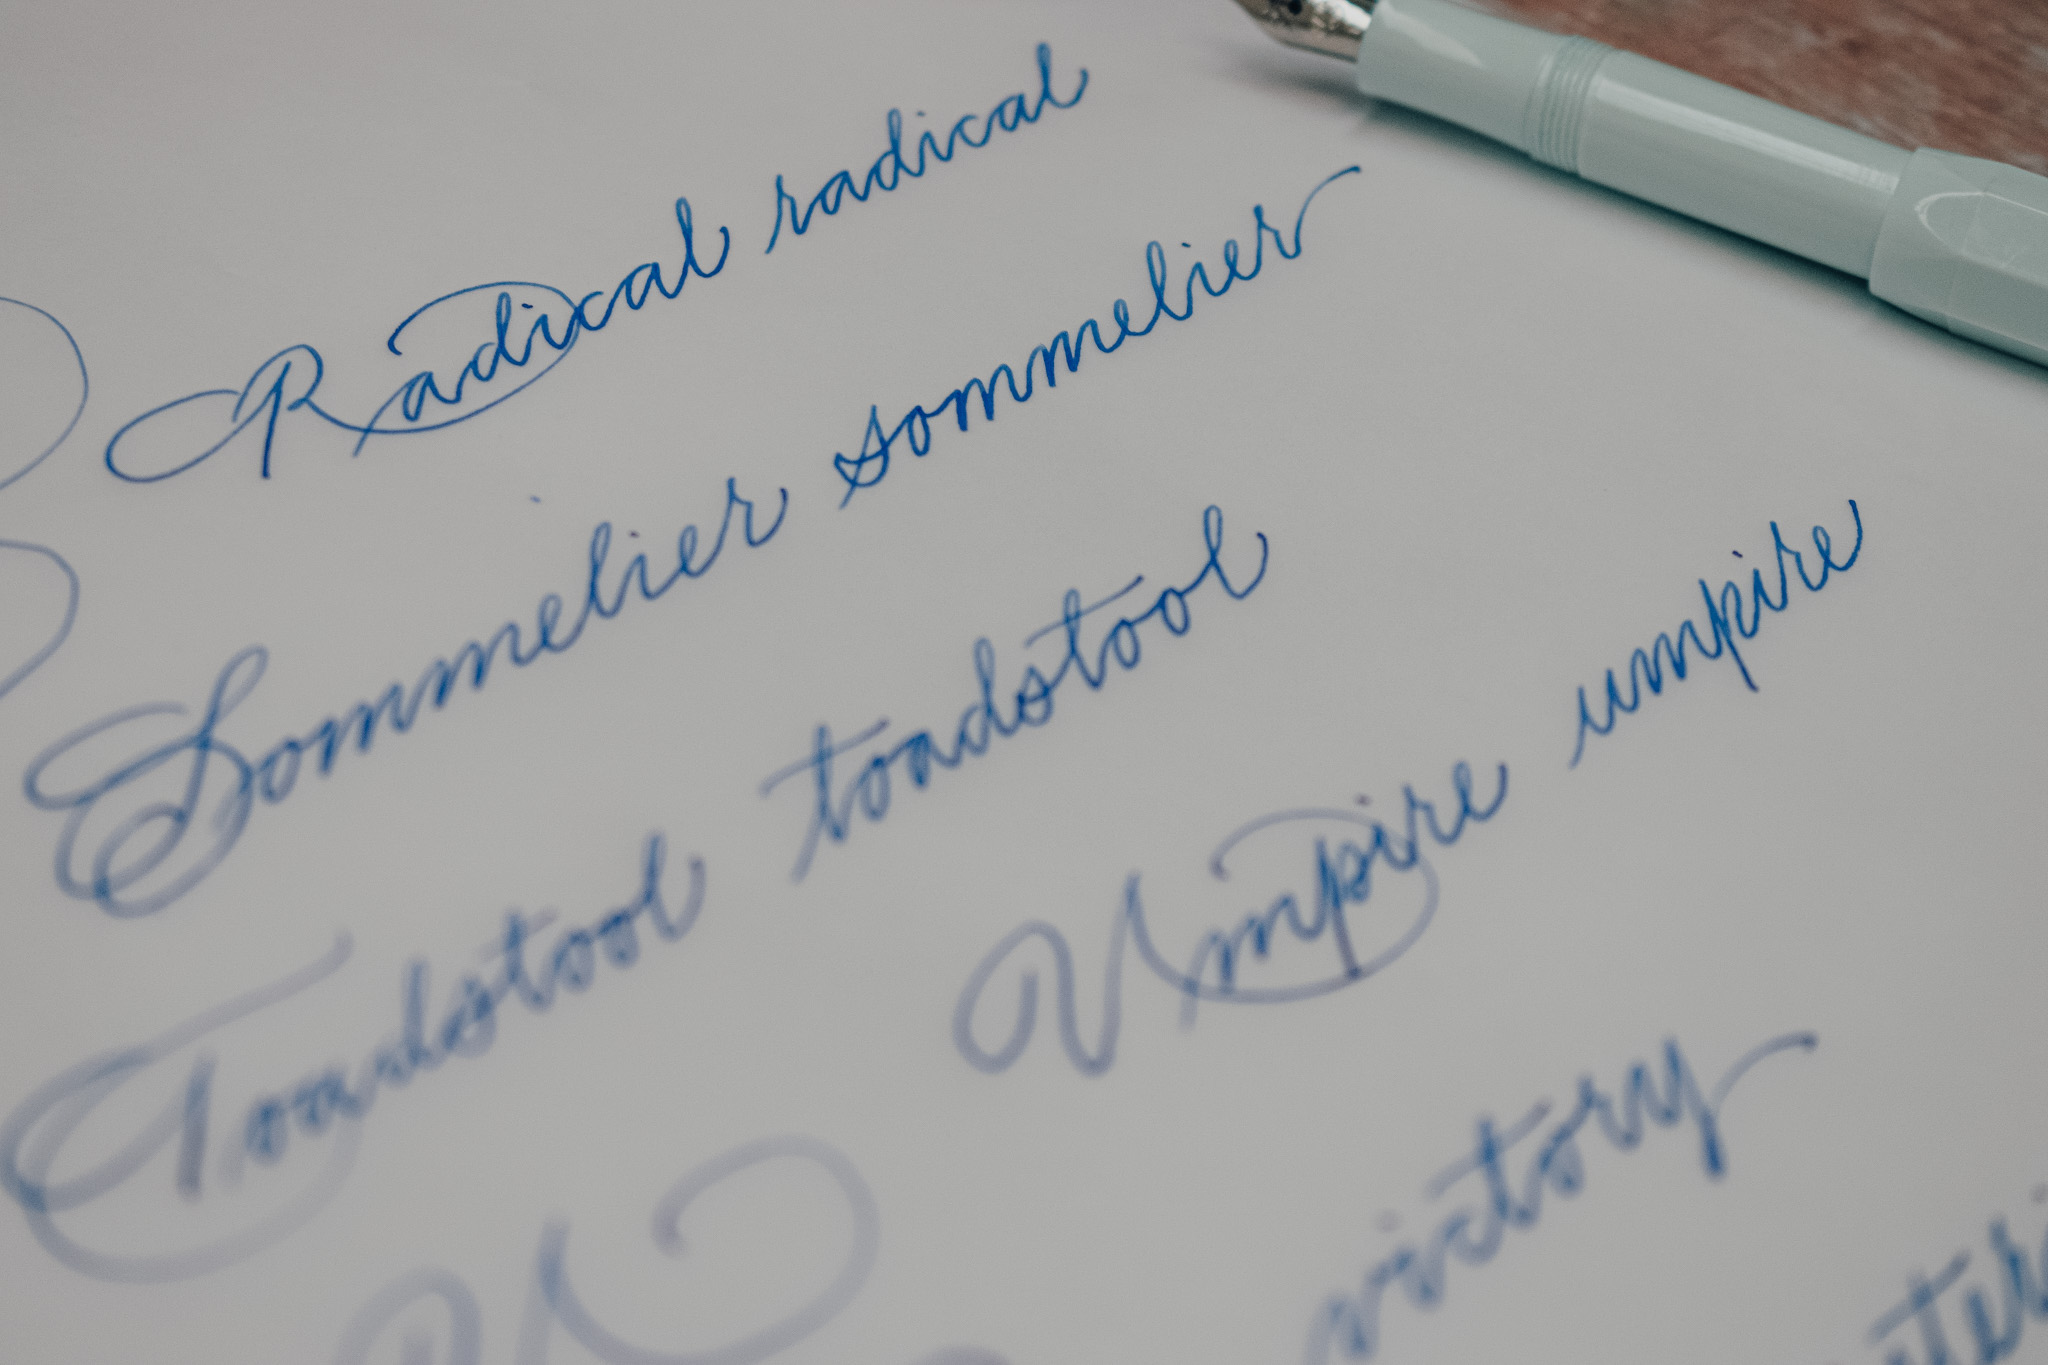 Radical radical
Sommelier sommelier
Toadstool toadstool
Umpire umpire
victory